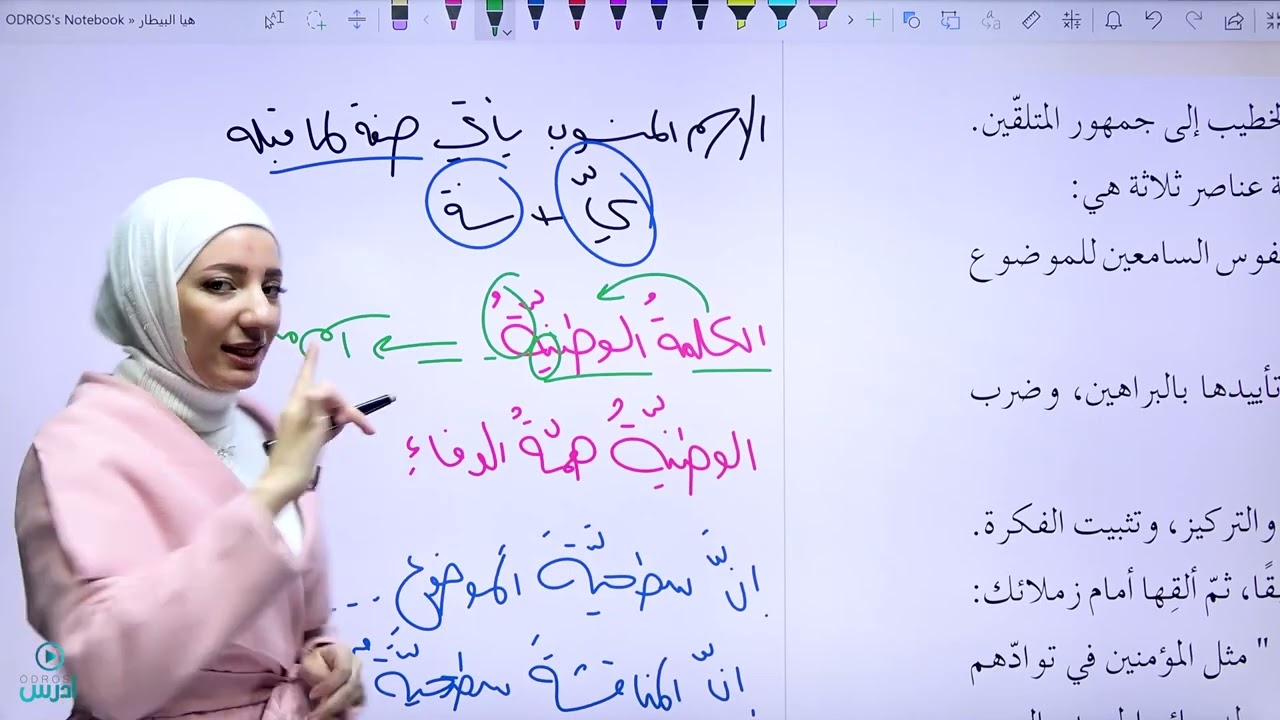 هيا البيطار » ODROS's Notebook
الاسم المنسوب يأتي صفة لما قبله
يّ + ـة
الكلمةُ الوطنيّةُ
الوطنيّةُ همّةُ الوفاءِ
إنّ سطحيّةَ الموضوع ...
إنّ المناقشةَ سطحيّةٌ
الخطيب إلى جمهور المتلقّين.
عناصر ثلاثة هي:
السامعين للموضوع
تأييدها بالبراهين، وضرب
والتركيز، وتثبيت الفكرة.
ثمّ ألقِها أمام زملائك:
" مثل المؤمنين في توادّهم
ODROS
ادرس